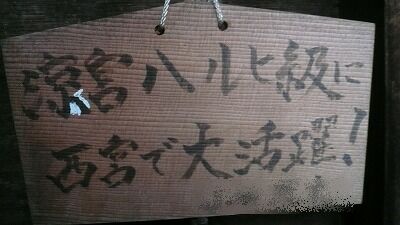 涼宮ハルヒ級に
西宮で大活躍!